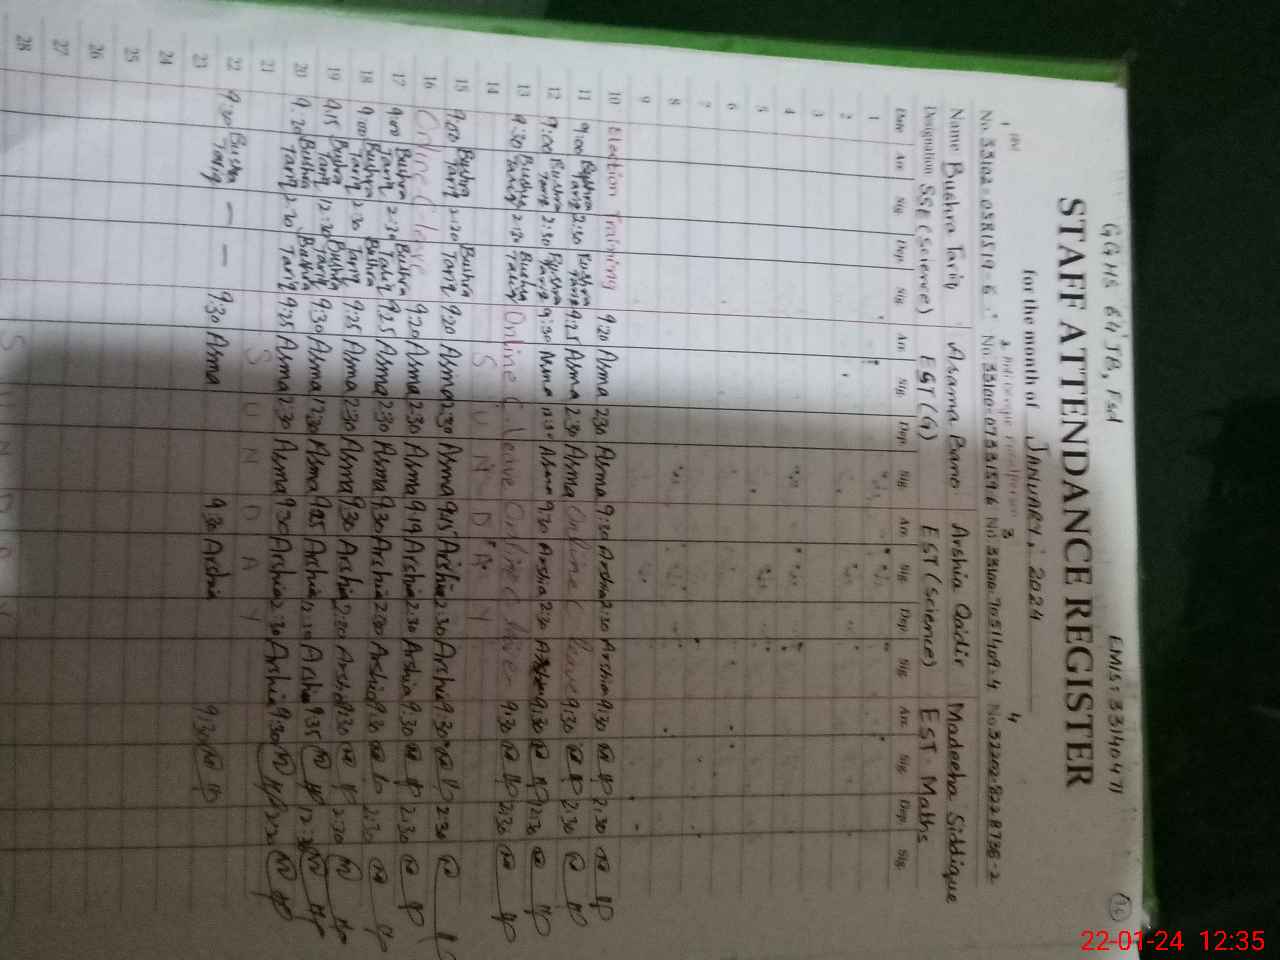 GGHS 64 JB, Fsd EMIS: 33140471
STAFF ATTENDANCE REGISTER
for the month of JANUARY, 2024
1 3 4
Name Bushra Tariq Asama Bano Arshia Qadir Madeeha Siddique
Designation SSE (Science) EST (G) EST (Science) EST Maths
Date Arr. Sig. Dep. Sig. Arr. Sig. Dep. Sig. Arr. Sig. Dep. Sig. Arr. Sig. Dep. Sig.
1
2
3
4
5
6
7
8
9
10 Election Training 9:20 Asma 2:30 Asma 9:30 Arshia 2:30 Arshia 9:30 2:30
11 9:00 Bushra Tariq 2:30 Bushra Tariq 9:25 Asma 2:30 Asma Online C leave 9:30 2:30
12 9:00 Bushra Tariq 2:30 Bushra Tariq 9:30 Asma 12:30 Asma 9:30 Arshia 2:30 Arshia 9:30 2:30
13 9:30 Bushra Tariq 2:20 Bushra Tariq Online C leave Online C leave 9:30 2:30
14 S U N D A Y
15 9:00 Bushra Tariq 2:20 Bushra Tariq 9:20 Asma 2:30 Asma 9:15 Arshia 2:30 Arshia 9:30 2:30
16 Online C leave 9:20 Asma 2:30 Asma 9:19 Arshia 2:30 Arshia 9:30 2:30
17 9:00 Bushra Tariq 2:30 Bushra Tariq 9:25 Asma 2:30 Asma 9:30 Arshia 2:00 Arshia 9:30 2:30
18 9:00 Bushra Tariq 2:30 Bushra Tariq 9:25 Asma 2:30 Asma 9:30 Arshia 2:20 Arshia 9:30 2:30
19 9:15 Bushra Tariq 12:30 Bushra Tariq 9:30 Asma 12:30 Asma 9:25 Arshia Arshia 9:35 12:30
20 9:20 Bushra Tariq 2:30 Bushra Tariq 9:25 Asma 2:30 Asma 9:30 Arshia 2:30 Arshia 9:30 2:30
21 S U N D A Y
22 9:30 Bushra Tariq - - 9:30 Asma 9:30 Arshia 9:30
23
24
25
26
27
28 S U N D A Y
22-01-24 12:35